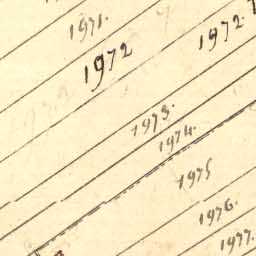 1971.
1972
1972.
1973.
1974.
1975
1976.
1977.